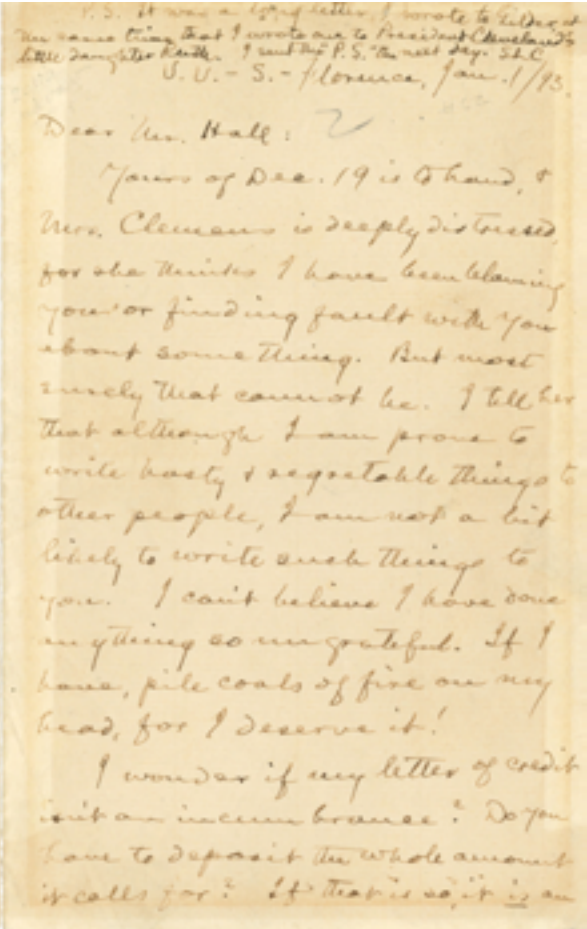 P.S. It was a long letter I wrote to Gilder, at
the same time that I wrote one to President Cleveland's
little daughter Ruth. I sent the P.S. the next day. SLC
Florence, Jan. 1/93.
Dear Mr. Hall:
Yours of Dec. 19 is to hand, &
Mrs. Clemens is deeply distressed,
for she thinks I have been blaming
you or finding fault with you
about something. But most
surely that cannot be. I tell her
that although I am prone to
write hasty & regretable things to
other people, I am not a bit
likely to write such things to
you. I can't believe I have done
anything so ungrateful. If I
have, pile coals of fire on my
head, for I deserve it!
I wonder if my letter of credit
isn't an incumbrance? Do you
have to deposit the whole amount
it calls for? If that is so, it is an